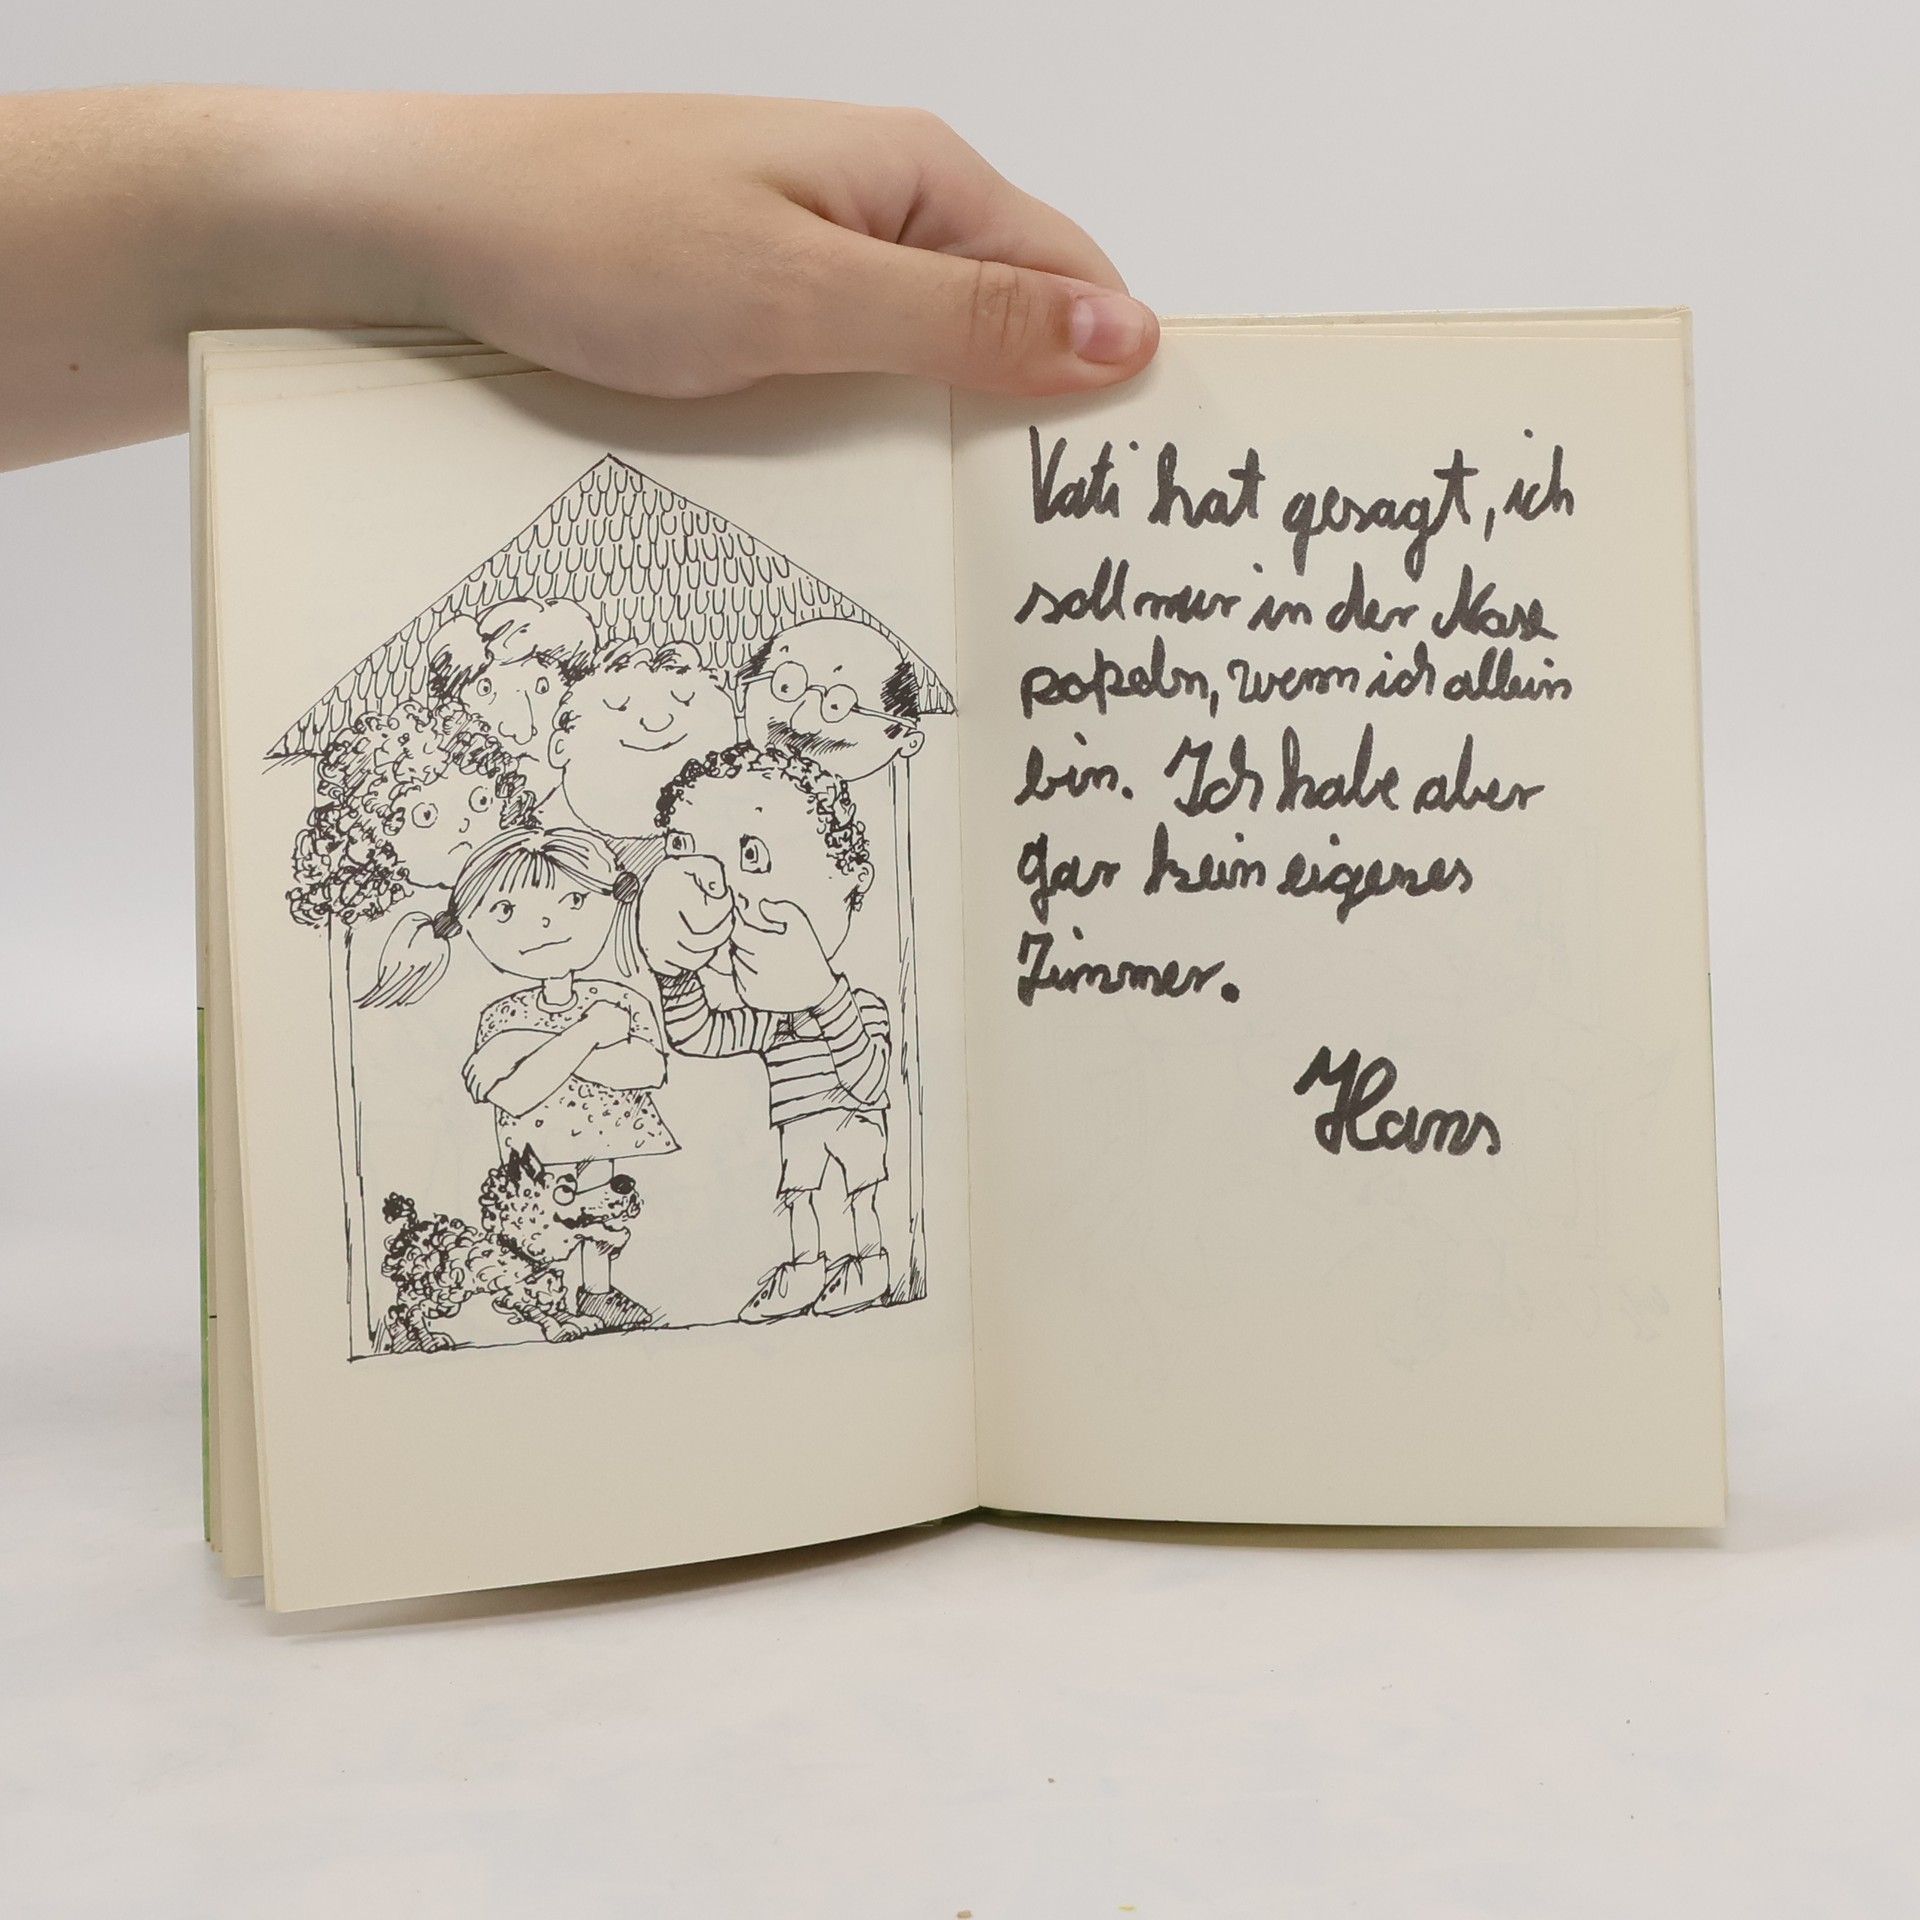 Vati hat gesagt, ich
soll nur in der Nase
popeln, wenn ich allein
bin. Ich habe aber
gar kein eigenes
Zimmer.
Hans